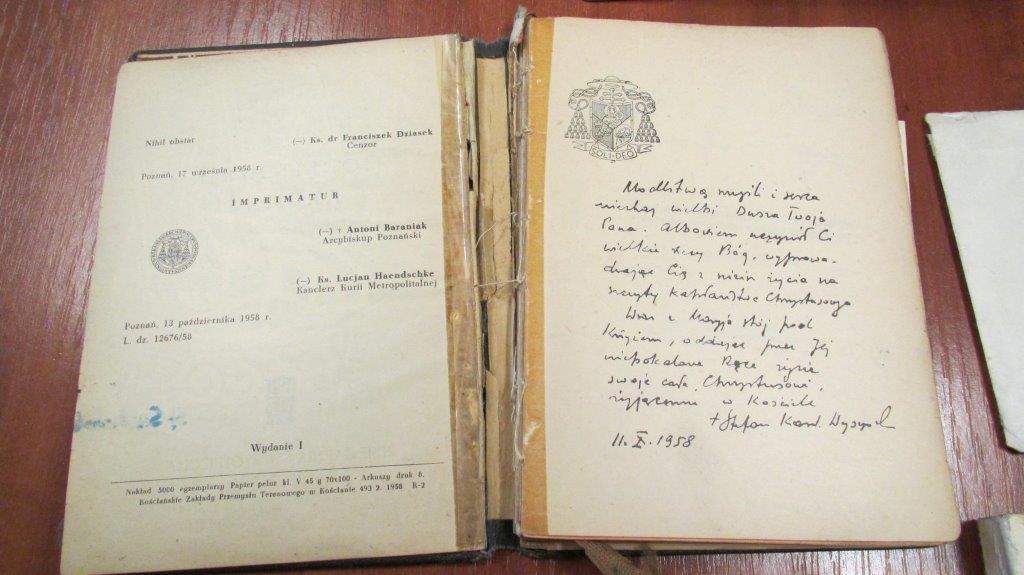 Nihil obstat
(—) Ks. dr Franciszek Dziasek
Cenzor
Poznań, 17 września 1958 r.
IMPRIMATUR
(—) † Antoni Baraniak
Arcybiskup Poznański
(—) Ks. Lucjan Haendschke
Kanclerz Kurii Metropolitalnej
Poznań, 13 października 1958 r.
L. dz. 12676/58
Wydanie I
Nakład 5000 egzemplarzy Papier pelur kl. V 45 g 70x100 - Arkuszy druk 8.
Kościańskie Zakłady Przemysłu Terenowego w Kościanie 493 2. 1958 R-2
SOLI·DEO
Modlitwą myśli i serca
niechaj wielbi Dusza Twoja
Pana. Albowiem uczynił Ci
wielkie rzeczy Bóg, wyprowa-
dzając Cię z nizin życia na
szczyty Kapłaństwa Chrystusowego
Wraz z Maryją stój pod
Krzyżem, oddając przez Jej
niepokalane Ręce życie
swoje całe, Chrystusowi,
żyjącemu w Kościele
+ Stefan Kard. Wyszyński
11.X.1958